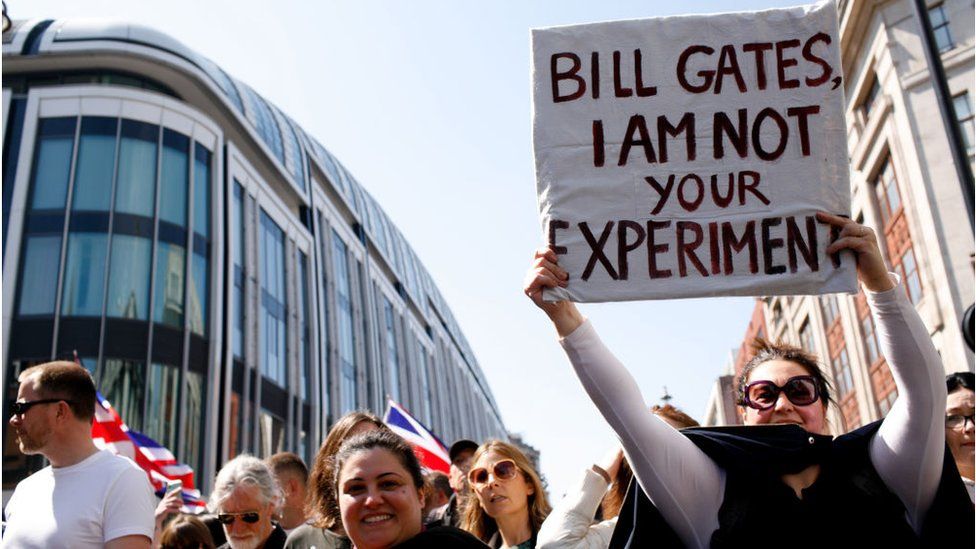 BILL GATES,
I AM NOT
YOUR
EXPERIMENT